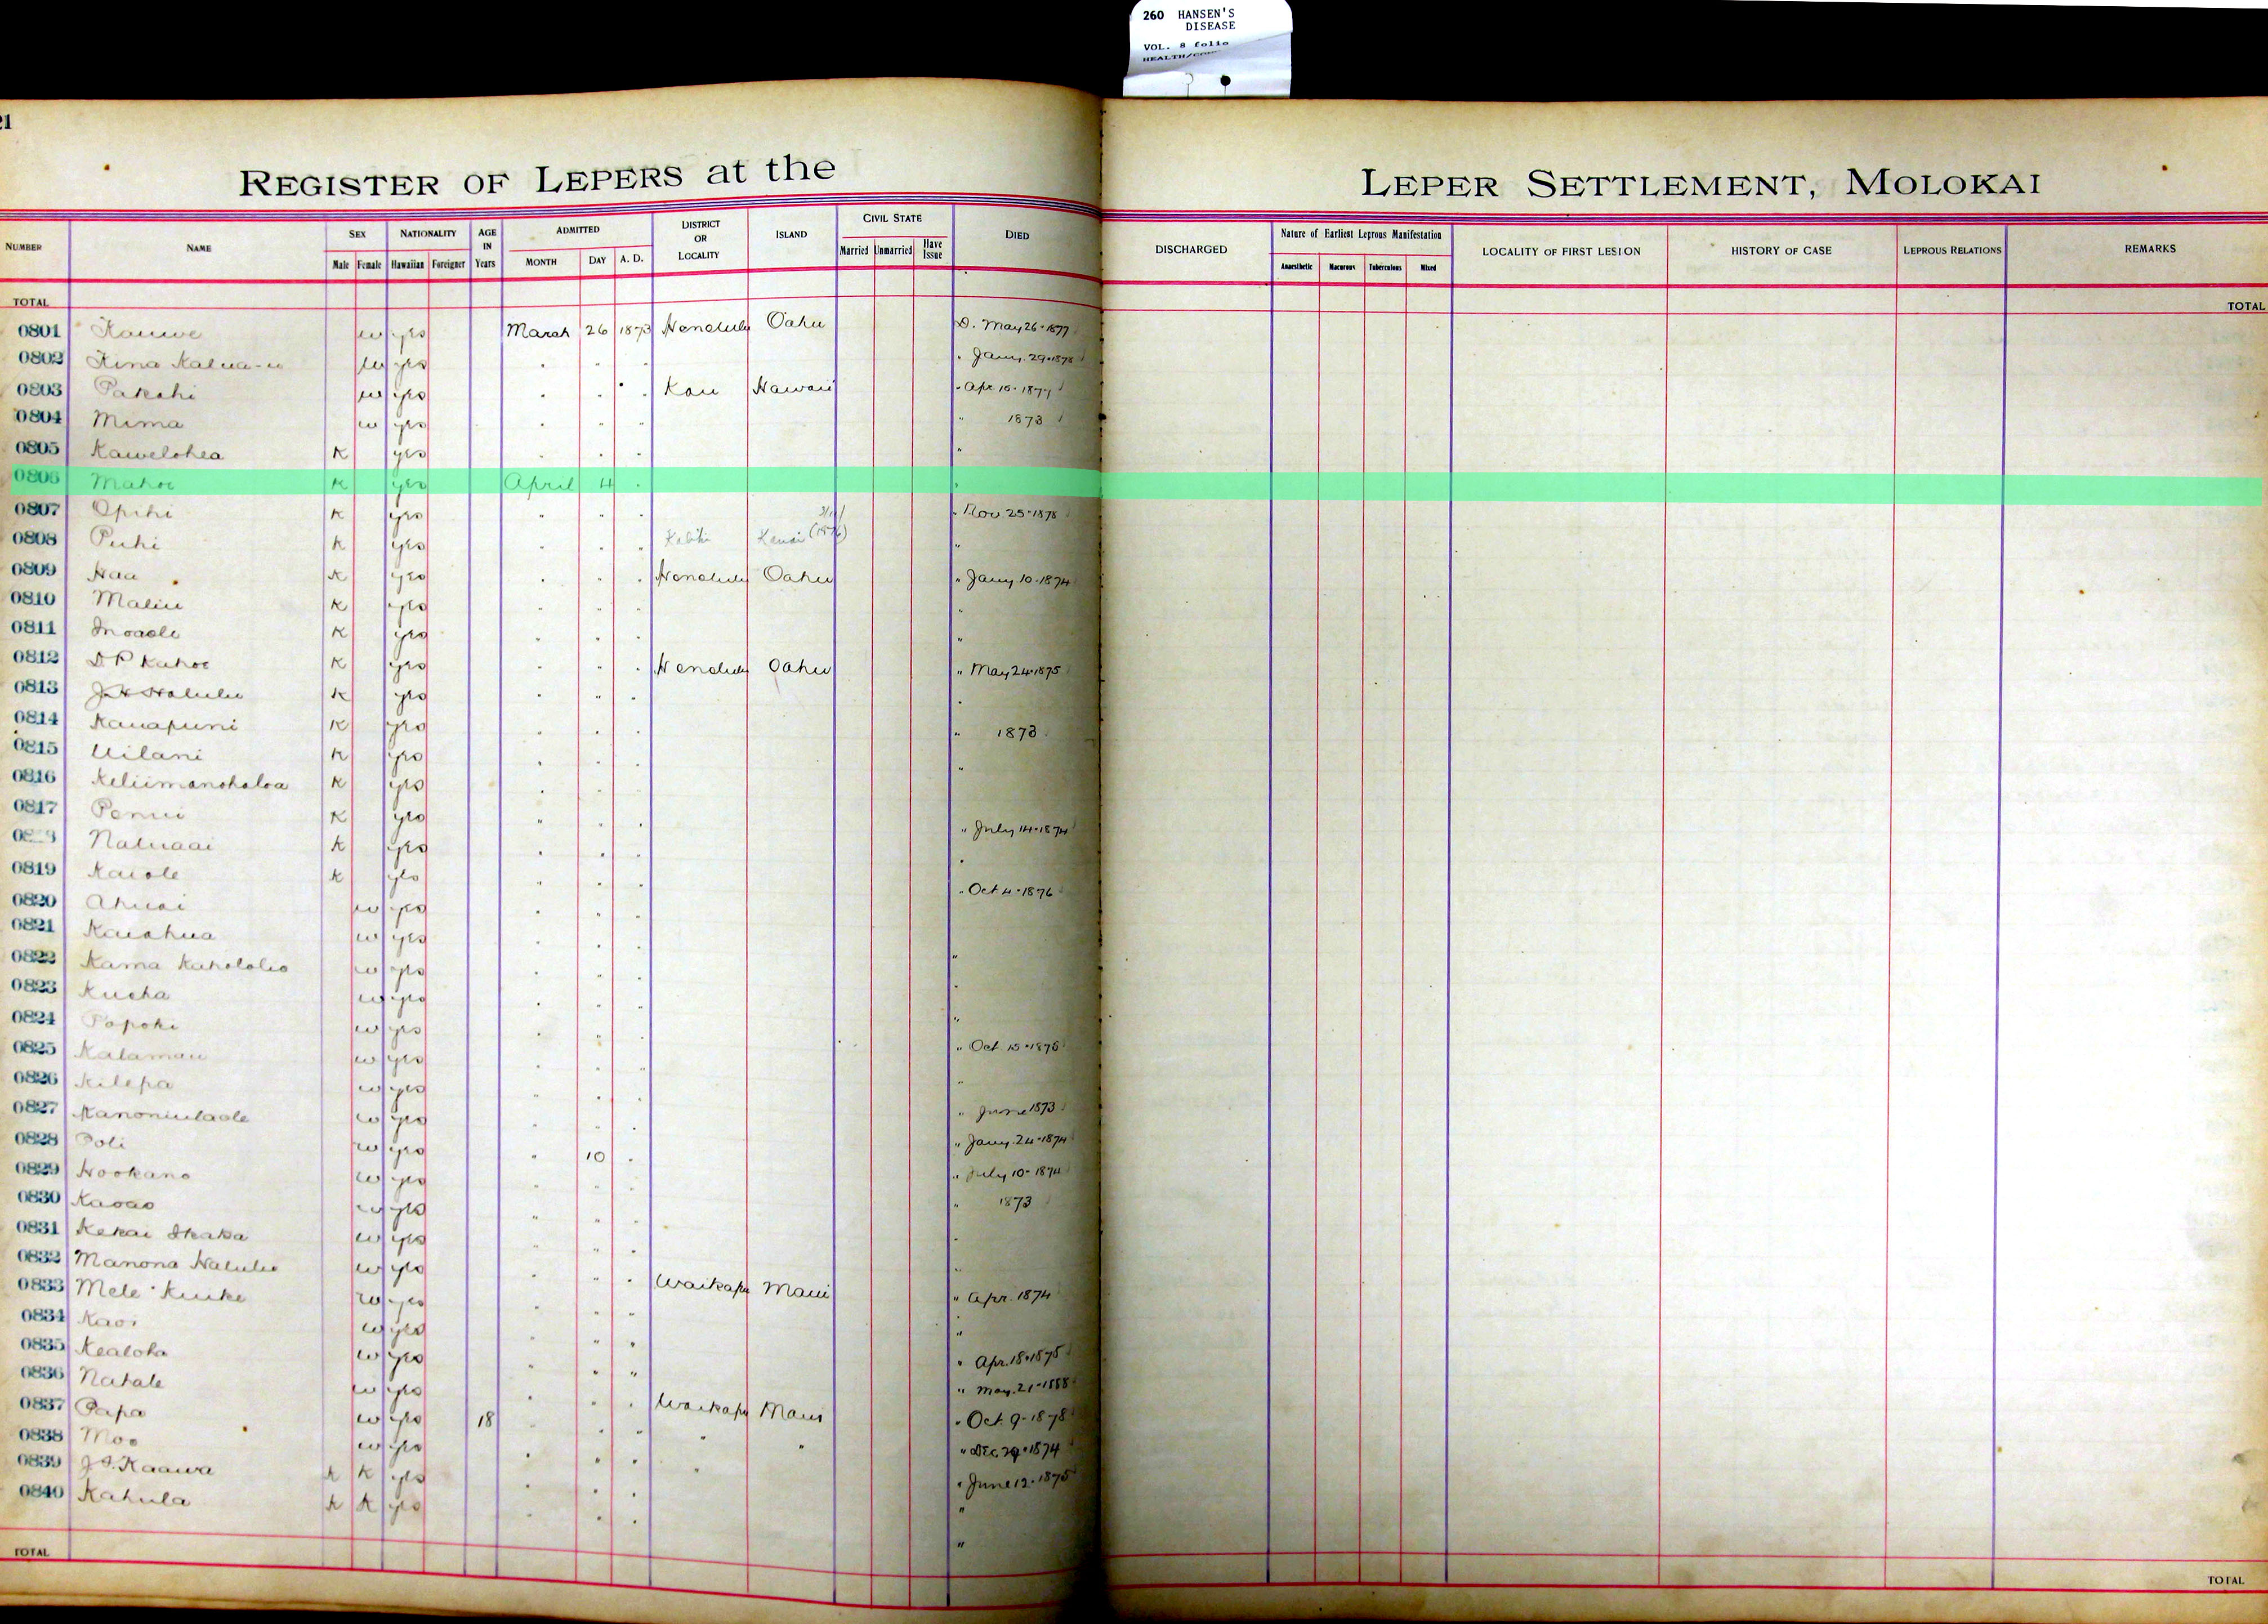 260 HANSEN'S
DISEASE
VOL. 8 folio
21
REGISTER OF LEPERS at the LEPER SETTLEMENT, MOLOKAI
NUMBER NAME SEX NATIONALITY AGE IN Years ADMITTED DISTRICT OR LOCALITY ISLAND CIVIL STATE DIED DISCHARGED Nature of Earliest Leprous Manifestation LOCALITY OF FIRST LESION HISTORY OF CASE LEPROUS RELATIONS REMARKS
Male Female Hawaiian Foreigner MONTH DAY A. D. Married Unmarried Have Issue Anaesthetic Macurous Tuberculous Mixed
TOTAL TOTAL
0801 Kauwe w yes March 26 1873 Honolulu Oahu D. May 26-1877
0802 Kina Kalua-u w yes " " " " Jany. 29-1878
0803 Pakahi w yes " " " Kau Hawaii " Apr 10-1877
0804 Mima w yes " " " " 1873
0805 Kawelohea K yes " " " "
0806 Mahoe K yes April 4 " "
0807 Opihi K yes " " " " Nov 25-1878
0808 Puhi K yes " " " Kauai "
0809 Haa K yes " " " Honolulu Oahu " Jany 10-1874
0810 Maliu K yes " " " "
0811 Inoaole K yes " " " "
0812 D P Kahoe K yes " " " Honolulu Oahu " May 24-1875
0813 J H Halulu K yes " " " "
0814 Kauapuni K yes " " " " 1873
0815 Uilani K yes " " " "
0816 Keliimanohaloa K yes " " "
0817 Penui K yes " " " " July 14-1874
Naluaai K yes " " " "
0819 Kaiole K yes " " " " Oct 4-1876
0820 Ahuai w yes " " "
0821 Kaiahua w yes " " " "
0822 Kama Kahololio w yes " " " "
0823 Kueha w yes " " " "
0824 Popoki w yes " " " " Oct. 15-1878
0825 Kalamau w yes " " " "
0826 Kilepa w yes " " " " June 1873
0827 Kanoniulaole w yes " " " " Jany. 24-1874
0828 Poli w yes " 10 " " July 10-1874
0829 Hookano w yes " " " " 1873
0830 Kaoao w yes " " " "
0831 Kekai Ikaka w yes " " " "
0832 Manona Halulu w yes " " " Waikapu Maui " Apr. 1874
0833 Mele Kuike w yes " " " "
0834 Kaoi w yes " " " " Apr. 18-1875
0835 Kealoha w yes " " " " May. 21-1888
0836 Nahale w yes " " " Waikapu Maui " Oct. 9-1878
0837 Papa w yes 18 " " " " " " Dec. 29-1874
0838 Moo w yes " " " " " June 12-1875
0839 J S. Kaawa K K yes " " " "
0840 Kahula K K yes " " " "
TOTAL TOTAL